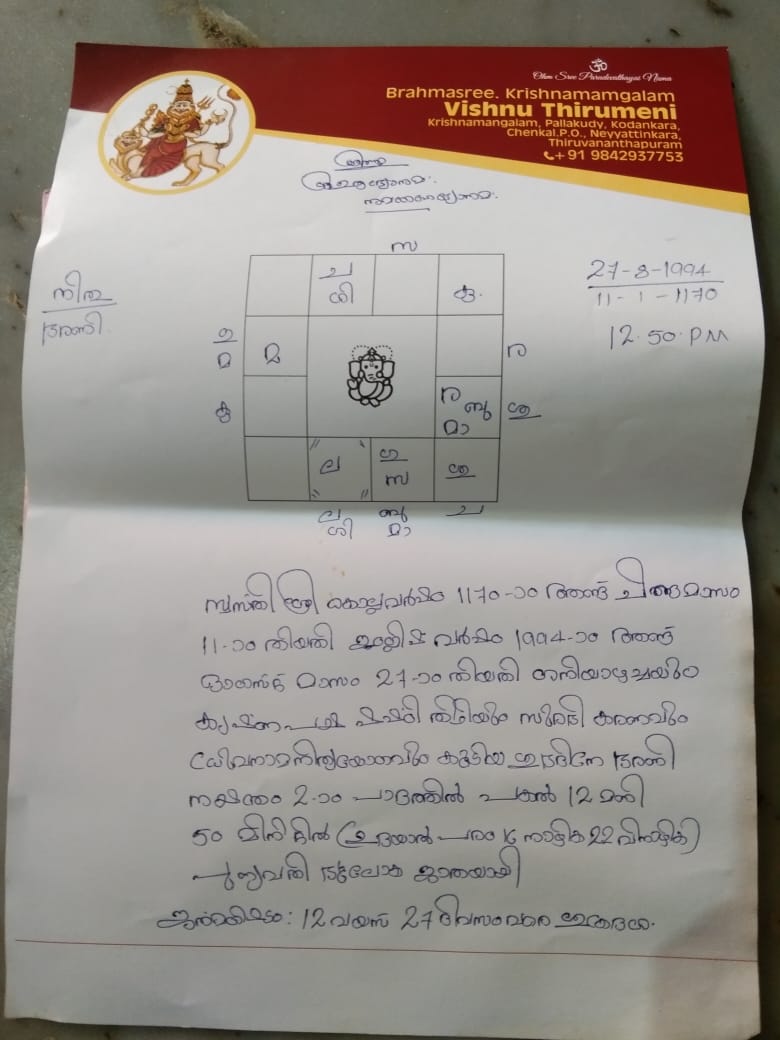 ॐ
Ohm Sree Paradevathayai Nama
Brahmasree. Krishnamamgalam
Vishnu Thirumeni
Krishnamangalam, Pallakudy, Kodankara,
Chenkal.P.O., Neyyattinkara,
Thiruvananthapuram
+ 91 9842937753
27-8-1994
11-1-1170
12.50.PM
ഭരണി
സ
ച
ശി
കു
മ
മ
ര
കു
ര ബു
മാ
ശു
ല
ഗു
സ
ല
ശി
ബു
മാ
ച
സ്വസ്തി ശ്രീ കൊല്ലവർഷം 1170-ാം ആണ്ട് ചിങ്ങമാസം
11-ാം തിയതി ഇംഗ്ലീഷ് വർഷം 1994-ാം ആണ്ട്
ഓഗസ്റ്റ് മാസം 27-ാം തിയതി ശനിയാഴ്ചയും
കൃഷ്ണപക്ഷ ഷഷ്ഠി തിഥിയും സുരഭി കരണവും
ധ്രുവനാമനിത്യയോഗവും കൂടിയ ശുഭദിനേ ഭരണി
നക്ഷത്രം 2-ാം പാദത്തിൽ പകൽ 12 മണി
50 മിനിറ്റിൽ (ഉദയാൽ പരം 16 നാഴിക 22 വിനാഴിക)
പുണ്യവതി ഭൂലോക ജാതയായി
ജന്മശിഷ്ടം: 12 വയസ് 27 ദിവസം വരെ ശുക്രദശ.